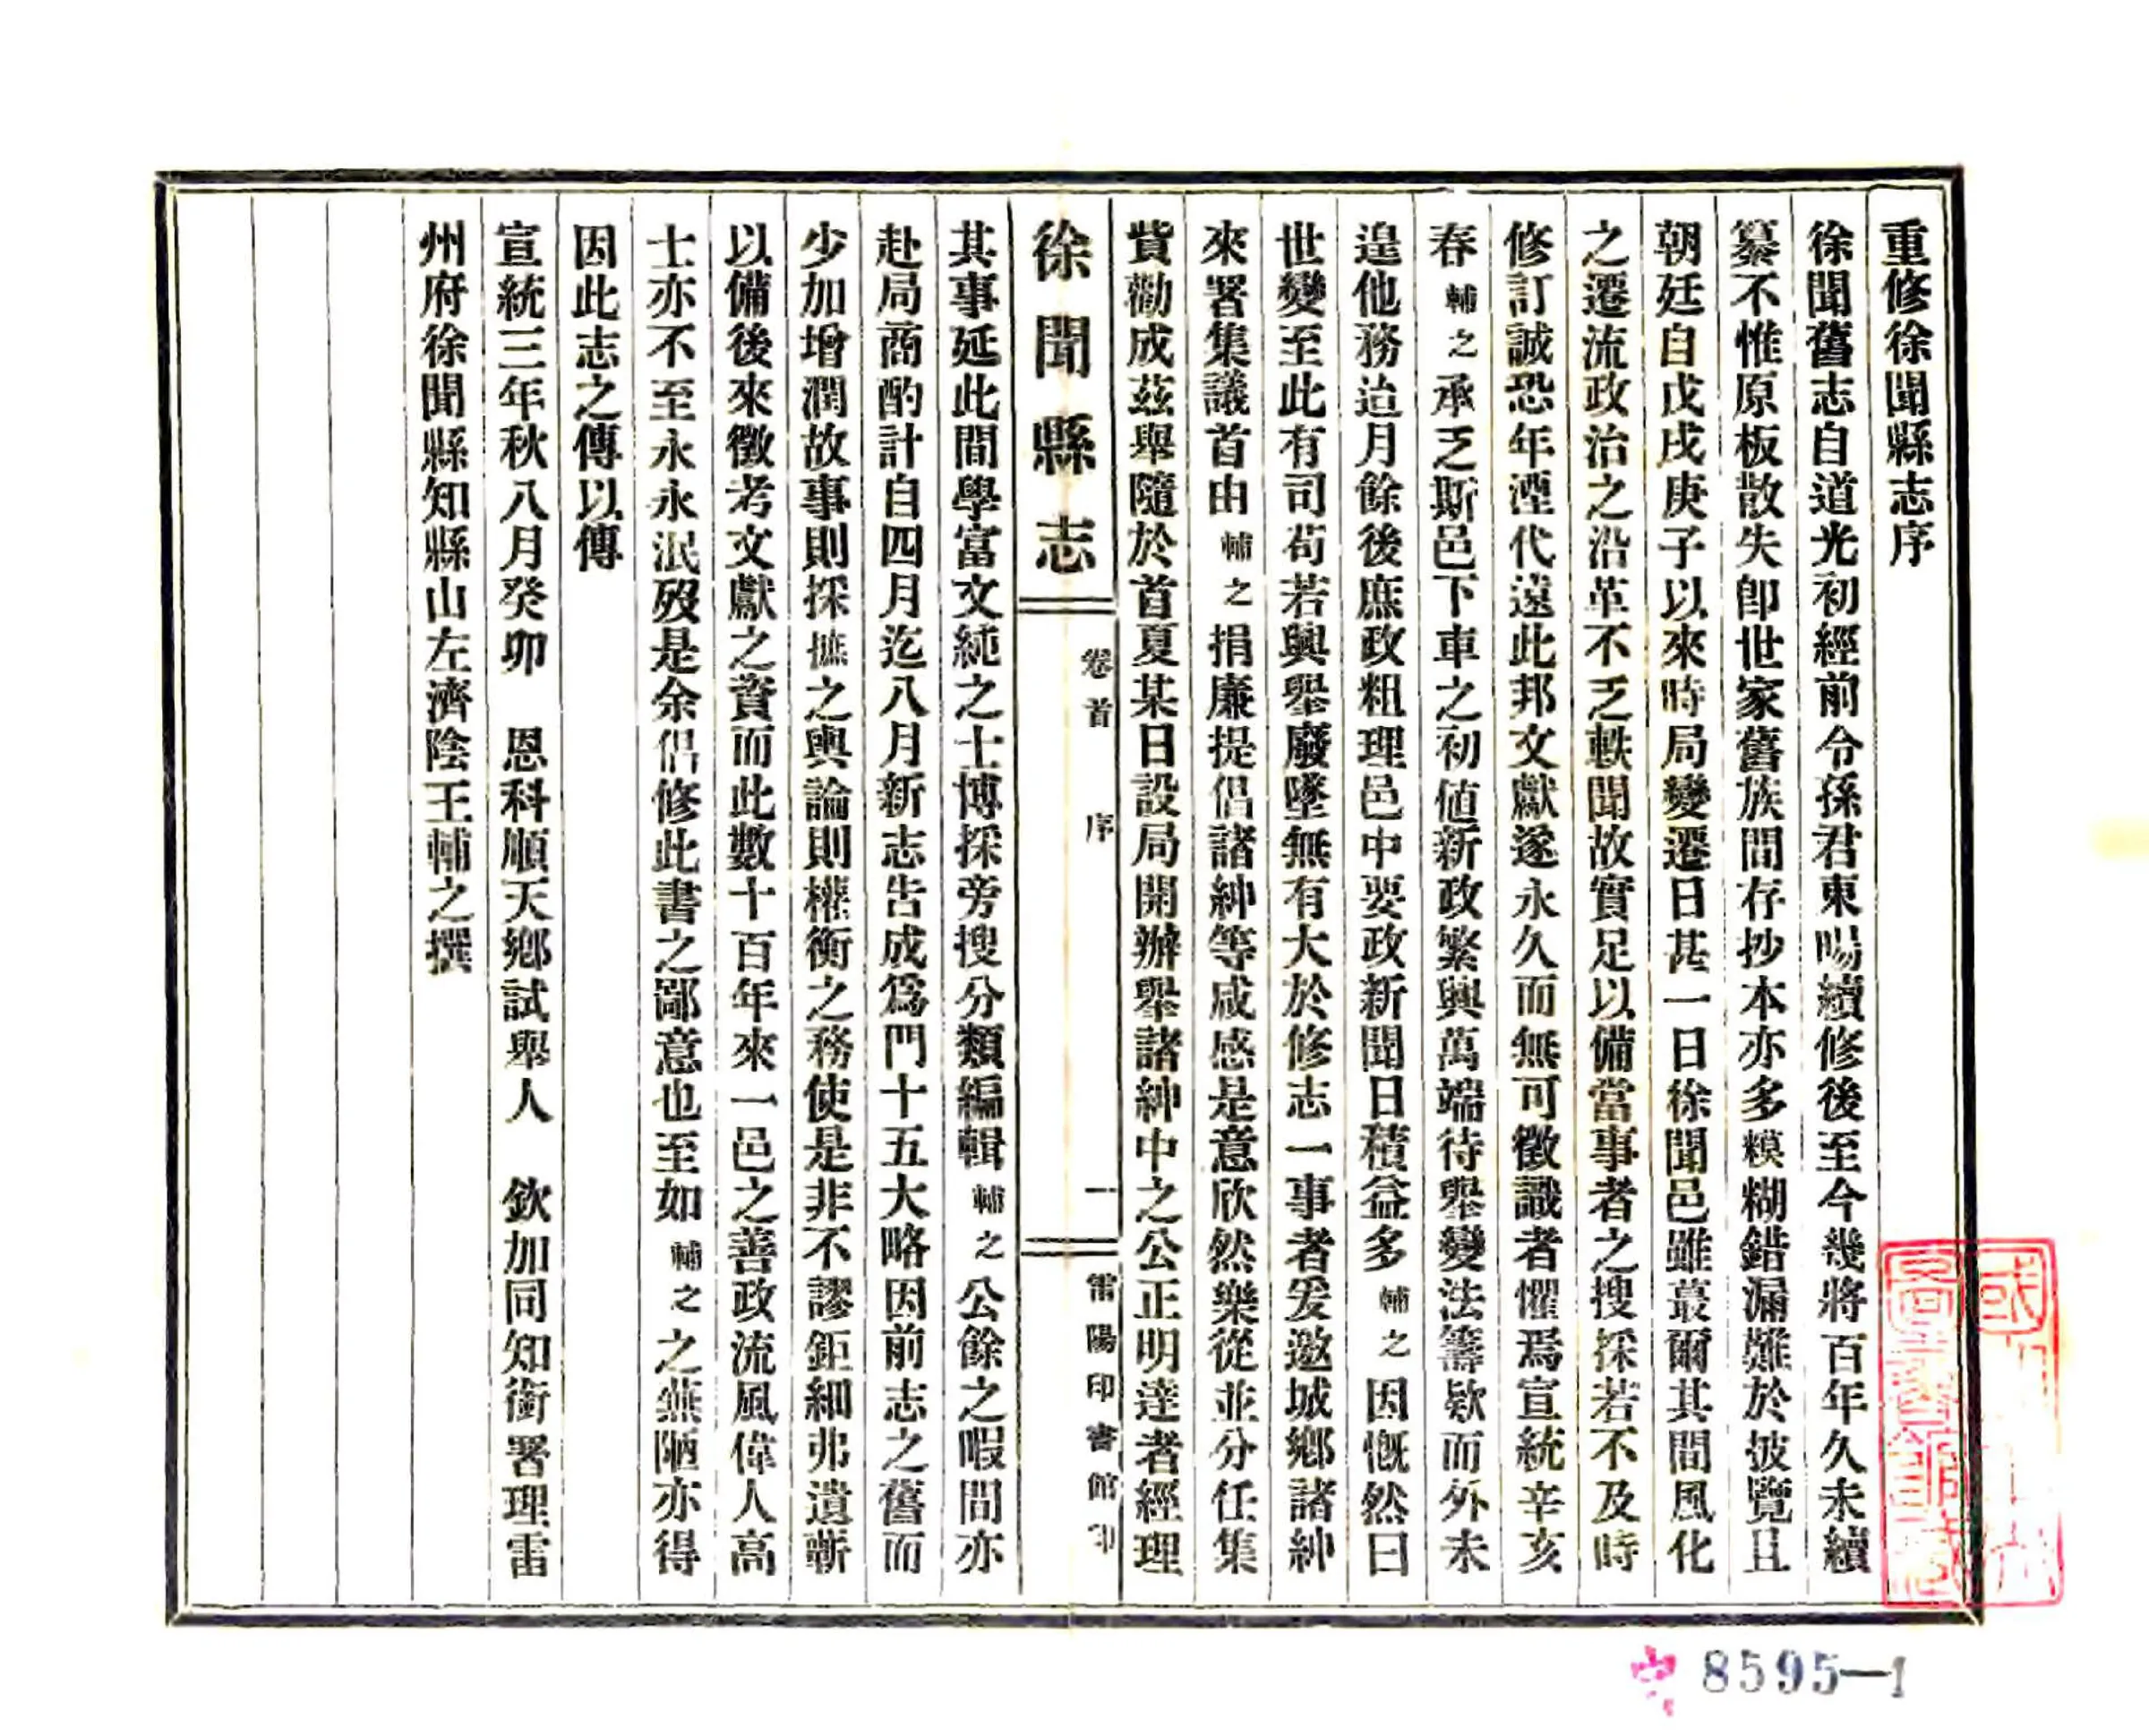 重修徐聞縣志序
徐聞舊志自道光初經前令孫君東暘續修後至今幾將百年久未續
纂不惟原板散失卽世家舊族間存抄本亦多糢糊錯漏難於披覽且
朝廷自戊戌庚子以來時局變遷日甚一日徐聞邑雖蕞爾其間風化
之遷流政治之沿革不乏軼聞故實足以備當事者之搜採若不及時
修訂誠恐年湮代遠此邦文獻遂永久而無可徵識者懼焉宣統辛亥
春輔之承乏斯邑下車之初値新政繁興萬端待舉變法籌欵而外未
遑他務迨月餘後庶政粗理邑中要政新聞日積益多輔之因慨然曰
世變至此有司苟若興舉廢墜無有大於修志一事者爰邀城鄉諸紳
來署集議首由輔之捐廉提倡諸紳等咸感是意欣然樂從並分任集
貲勸成茲舉隨於首夏某日設局開辦舉諸紳中之公正明達者經理
徐聞縣志
卷首 序
一
雷陽印書館印
其事延此間學富文純之士博採旁搜分類編輯輔之公餘之暇間亦
赴局商酌計自四月迄八月新志告成爲門十五大略因前志之舊而
少加增潤故事則採摭之輿論則權衡之務使是非不謬鉅細弗遺嶄
以備後來徵考文獻之資而此數十百年來一邑之善政流風偉人高
士亦不至永永泯歿是余侶修此書之鄙意也至如輔之之蕪陋亦得
因此志之傳以傳
宣統三年秋八月癸卯 恩科順天鄉試舉人 欽加同知銜署理雷
州府徐聞縣知縣山左濟陰王輔之撰
8595—1